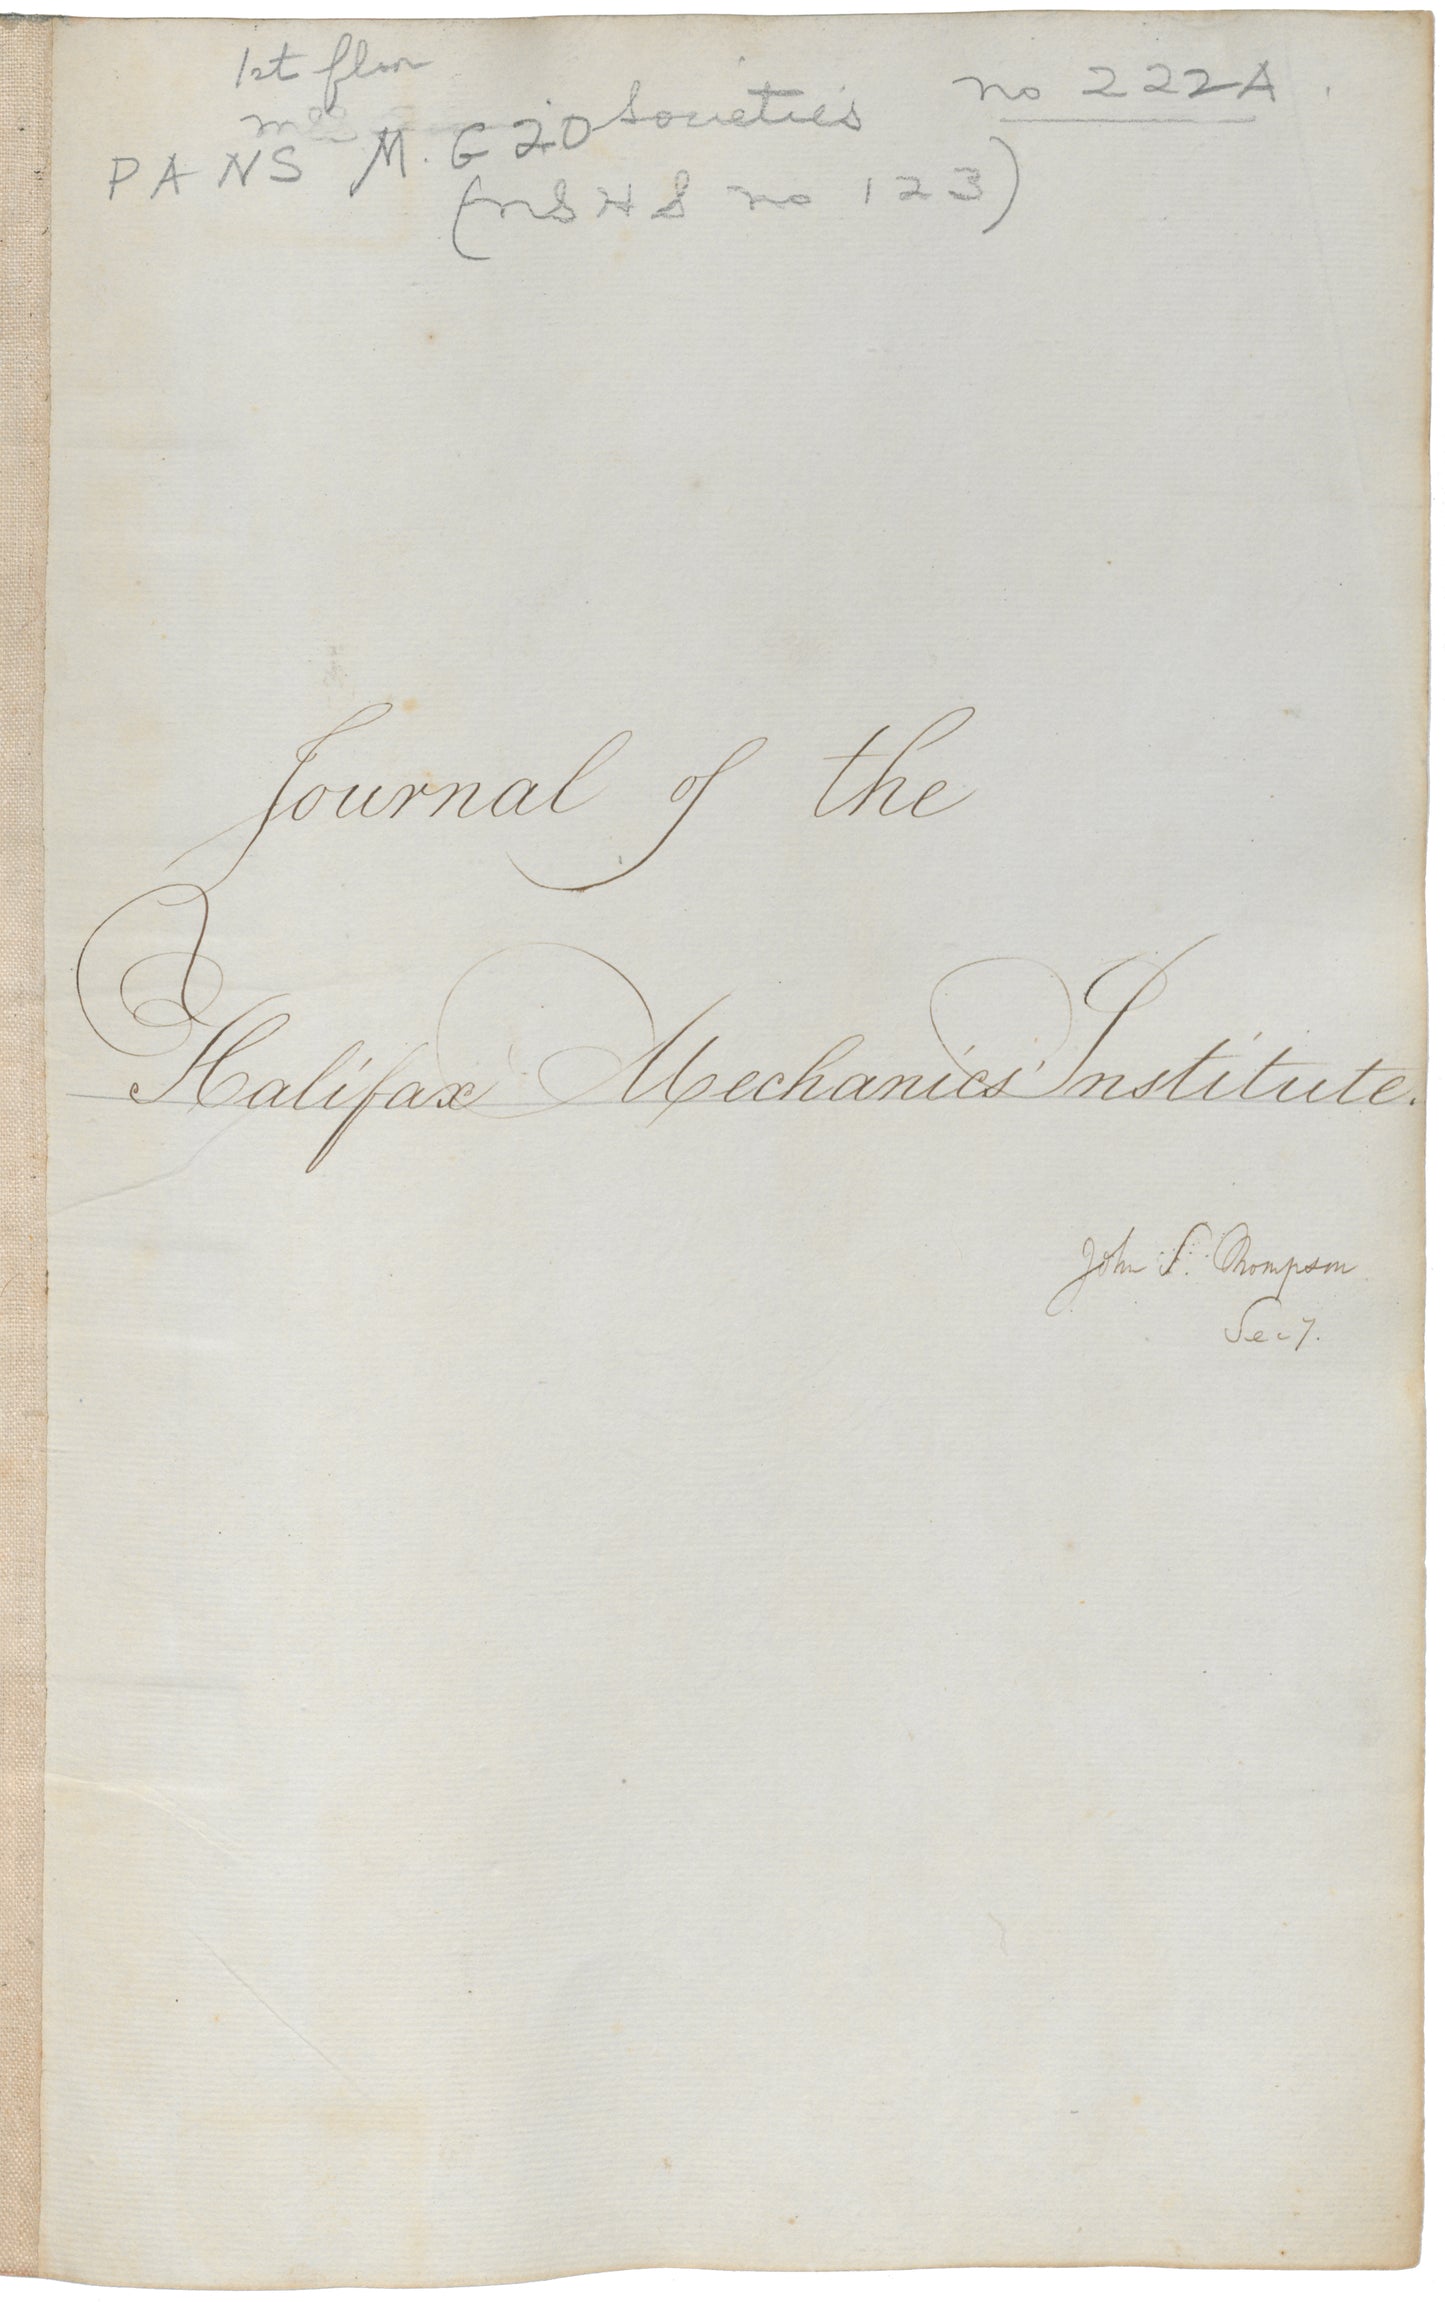 1st floor
Societies no 222A.
PANS M.G 20
(NSHS no 123)
Journal of the
Halifax Mechanics' Institute.
John S. Thompson
Secy.